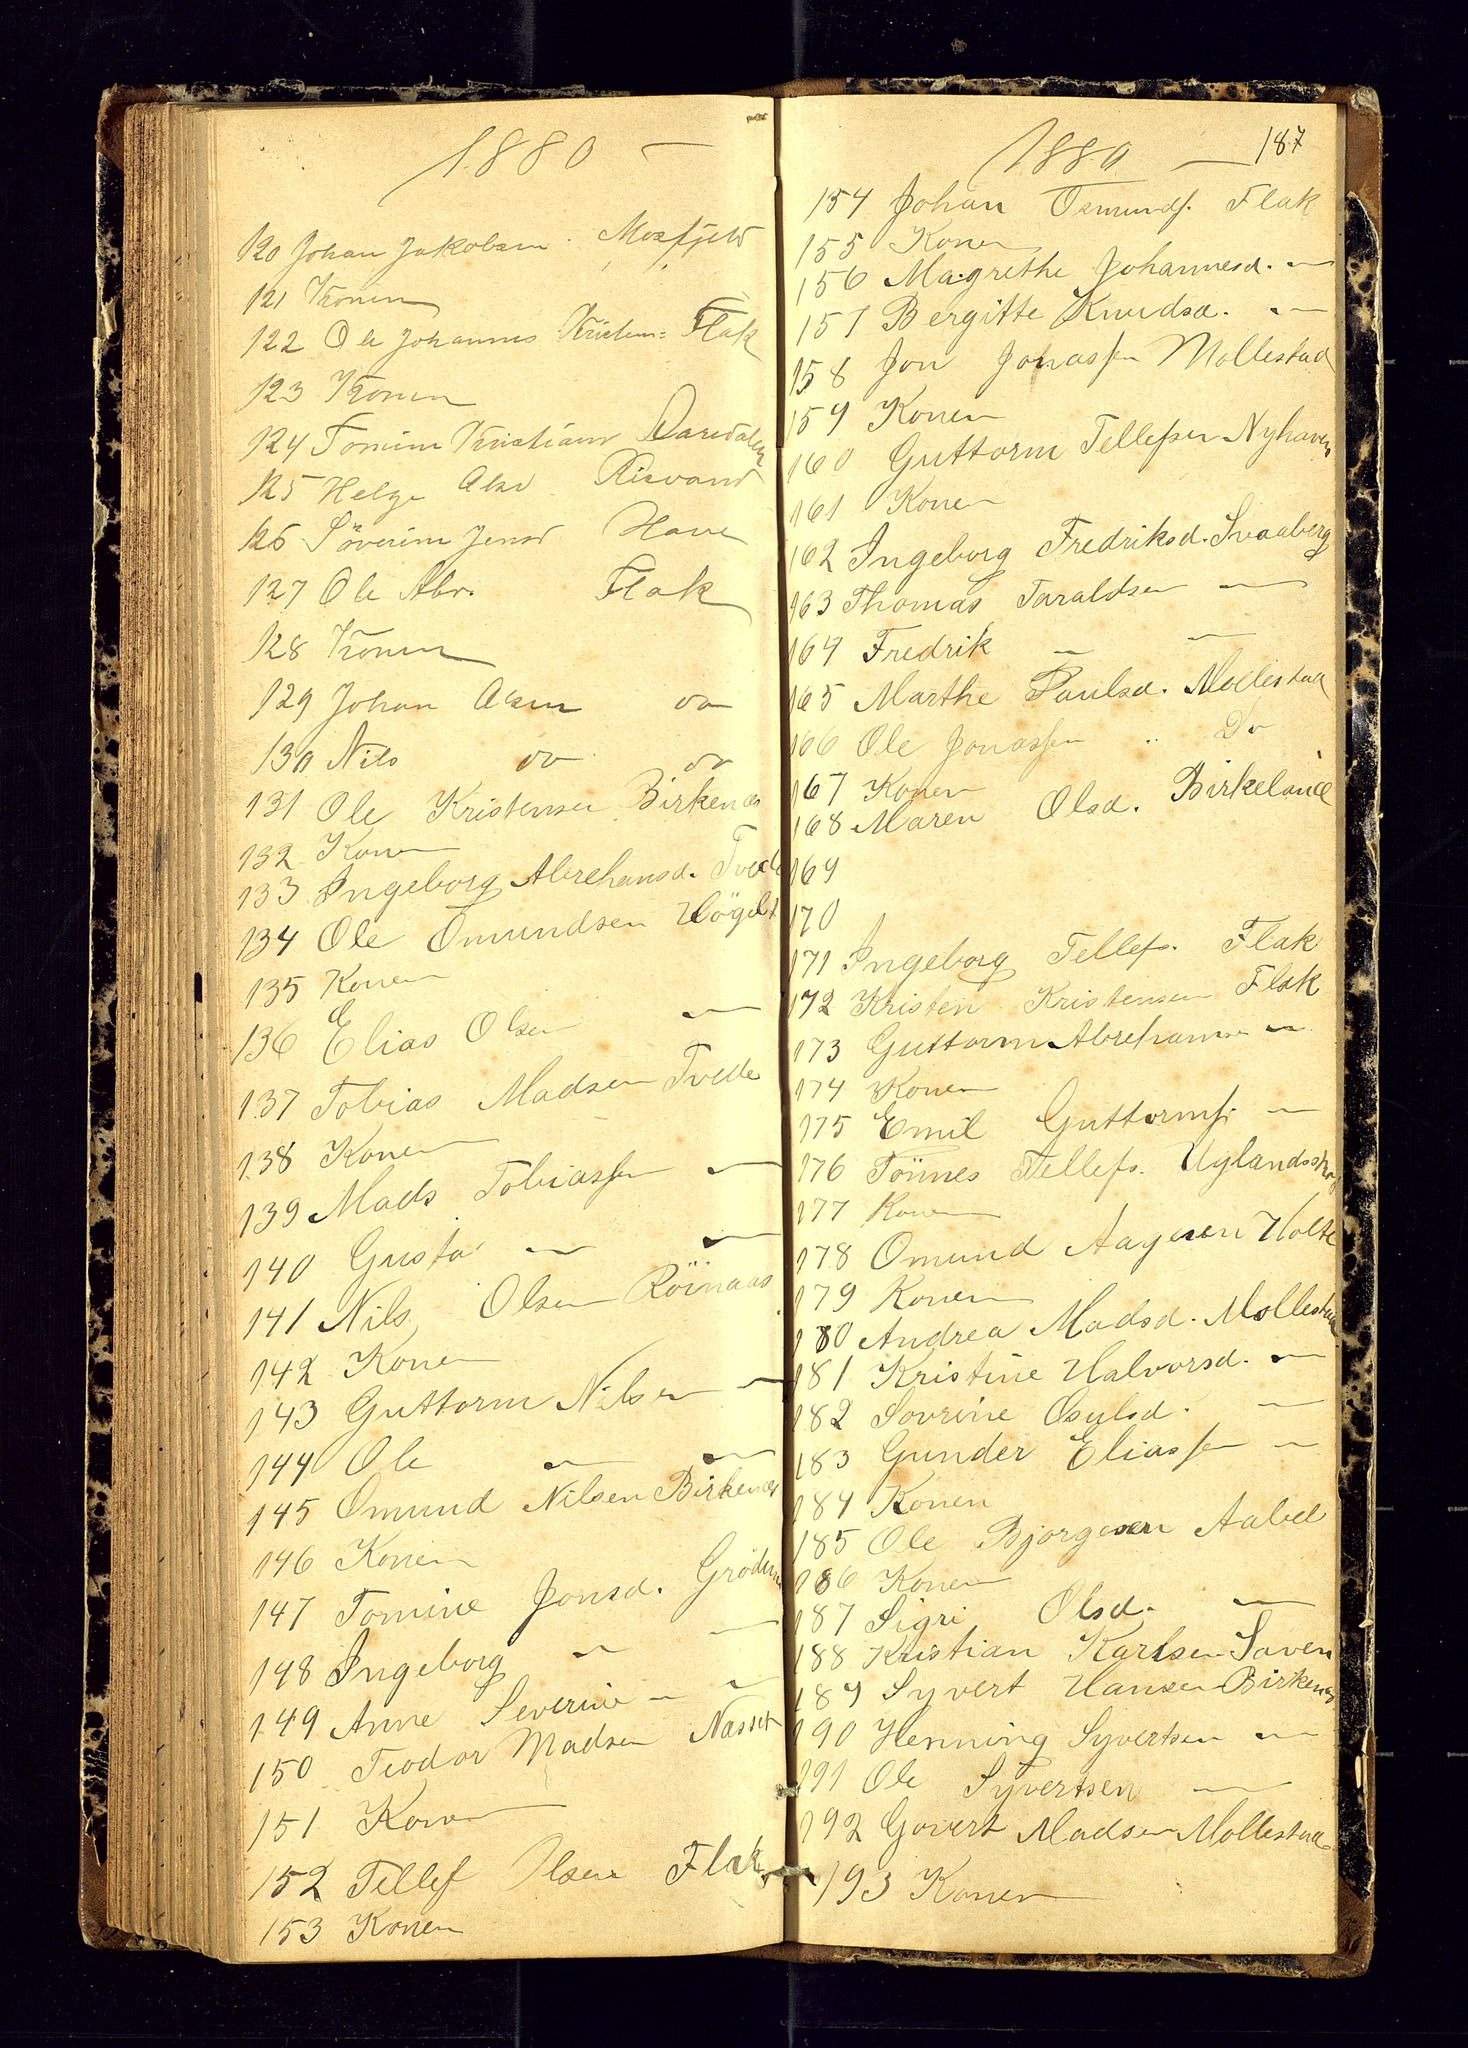 1880 —
120 Johan Jakobsen Mosfjeld
121 Konen
122 Ole Johannes Kristens: Flak
123 Konen
124 Tomine Kristians Oaredalen
125 Helge Olsd Risvand
126 Söverine Jensd Have
127 Ole Abr. Flak
128 Konen
129 Johan Olsen do
130 Nils do do
131 Ole Kristensen Birkenes
132 Konen
133 Ingeborg Abrehamsd. Tvede
134 Ole Omundsen Högelt
135 Konen
136 Elias Olsen —
137 Tobias Madsen Tvede
138 Konen
139 Mads Tobiassen —
140 Gustav — —
141 Nils Olsen Röinaas
142 Konen
143 Guttorm Nilsen —
144 Ole — —
145 Omund Nilsen Birkenes
146 Konen
147 Tomine Jonsd. Grödum
148 Ingeborg — —
149 Anne Severine — —
150 Teodor Madsen Næset
151 Konen
152 Tellef Olsen Flak
153 Konen
1880 — 187
154 Johan Osmunds. Flak
155 Konen
156 Magrethe Johannesd. —
157 Bergitte Knudsd. —
158 Jon Jonassen Mollestad
159 Konen
160 Guttorm Tellefsen Nyhaven
161 Konen
162 Ingeborg Fredriksd. Svaaberg
163 Thomas Taraldsen —
164 Fredrik — —
165 Marthe Paulsd. Mollestad
166 Ole Jonassen .. Do
167 Konen
168 Maren Olsd. Birkeland
169
170
171 Ingeborg Tellefs. Flak
172 Kristen Kristensen Flak
173 Guttorm Abrehamsen —
174 Konen
175 Emil Guttorms. —
176 Tönnes Tellefs. Uglandsskog
177 Konen
178 Omund Aagesen Holte
179 Konen
180 Andrea Madsd. Mollestad
181 Kristine Halvorsd. —
182 Sovrine Osulsd. —
183 Gunder Eliassen —
184 Konen
185 Ole Bjorgesen Aabel
186 Konen
187 Sigri Olsd. —
188 Kristian Karlsen Saven
189 Syvert Hansen Birkenes
190 Henning Syvertsen —
191 Ole Syvertsen —
192 Govert Madsen Mollestad
193 Konen